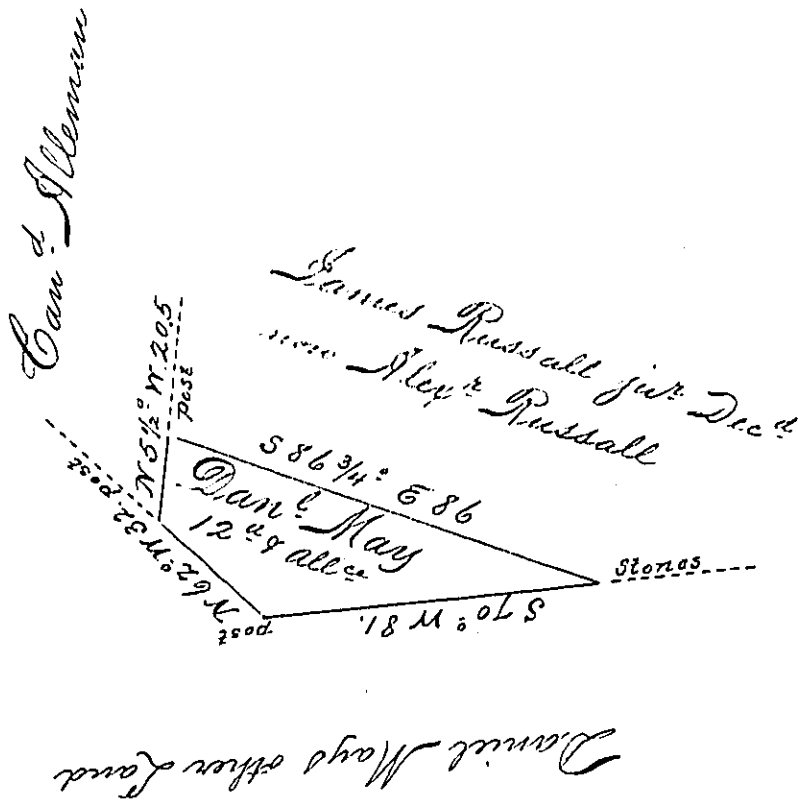 Con.d Alleman
James Russall jur Dec.d
now Alex.r Russall
N 5 1/2° W 20.5
post
S 86 3/4° E 86
Dan.l May
12 a & all.ce
N 62° W 32
post
post
S 70° W 81.
Stones
Daniel Mays other Land